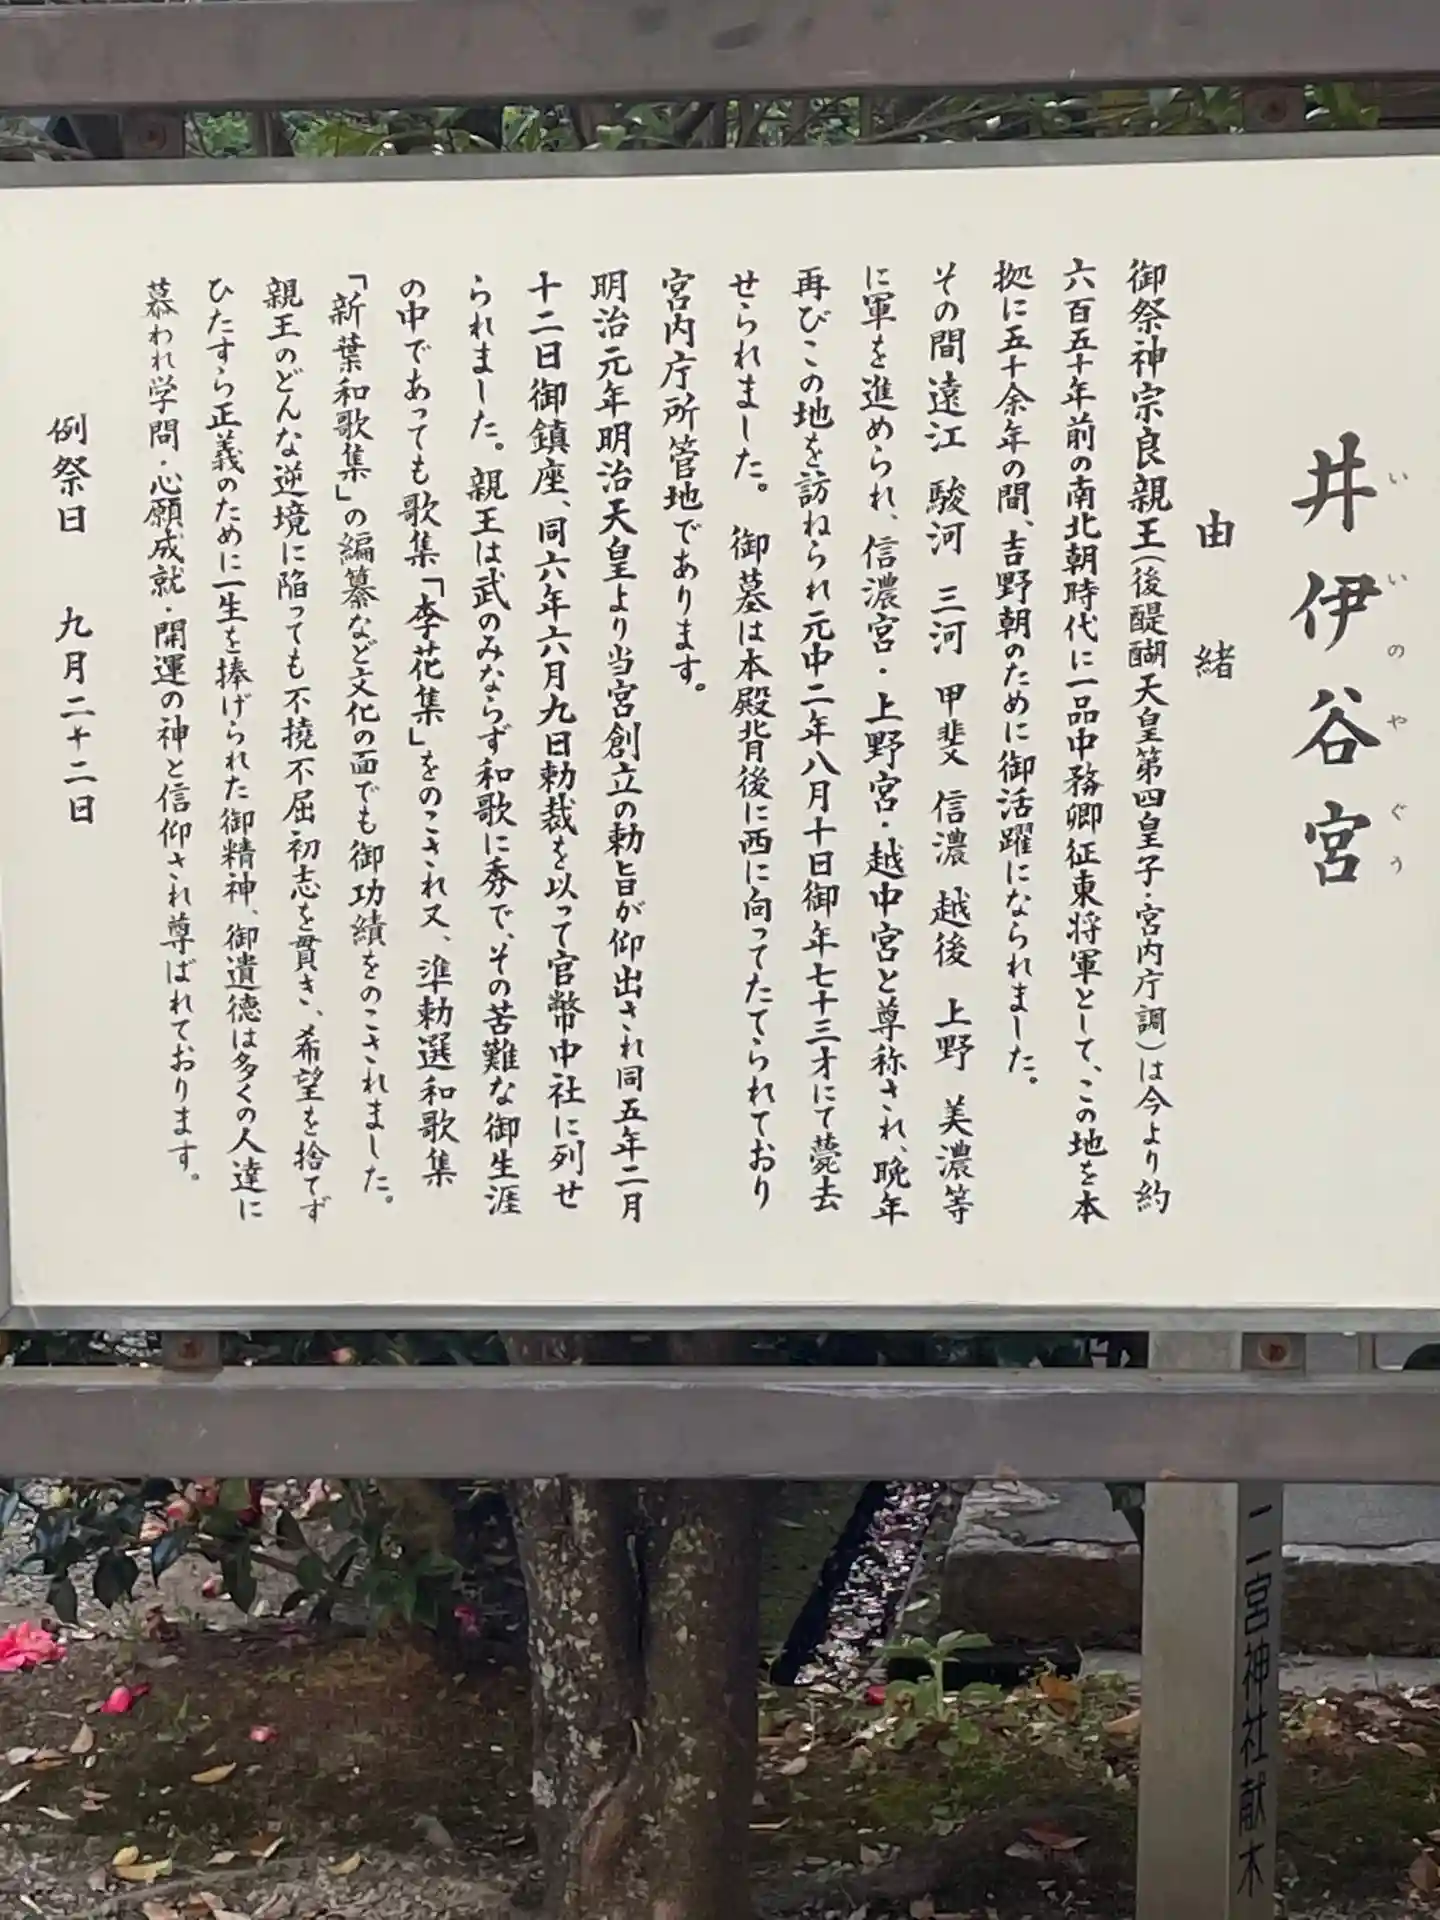 井伊谷宮
いいのやぐう
由緒
御祭神宗良親王(後醍醐天皇第四皇子・宮内庁調)は今より約
六百五十年前の南北朝時代に一品中務卿征東将軍として、この地を本
拠に五十余年の間、吉野朝のために御活躍になられました。
その間遠江 駿河 三河 甲斐 信濃 越後 上野 美濃等
に軍を進められ、信濃宮・上野宮・越中宮と尊称され、晩年
再びこの地を訪ねられ元中二年八月十日御年七十三才にて薨去
せられました。 御墓は本殿背後に西に向ってたてられており
宮内庁所管地であります。
明治元年明治天皇より当宮創立の勅旨が仰出され同五年二月
十二日御鎮座、同六年六月九日勅裁を以って官幣中社に列せ
られました。親王は武のみならず和歌に秀で、その苦難な御生涯
の中であっても歌集「李花集」をのこされ又、準勅選和歌集
「新葉和歌集」の編纂など文化の面でも御功績をのこされました。
親王のどんな逆境に陥っても不撓不屈初志を貫き、希望を捨てず
ひたすら正義のために一生を捧げられた御精神、御遺徳は多くの人達に
慕われ学問・心願成就・開運の神と信仰され尊ばれております。
例祭日 九月二十二日
二宮神社献木